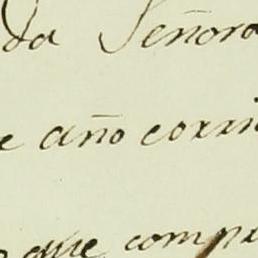 da Señora
e año corri
que compr